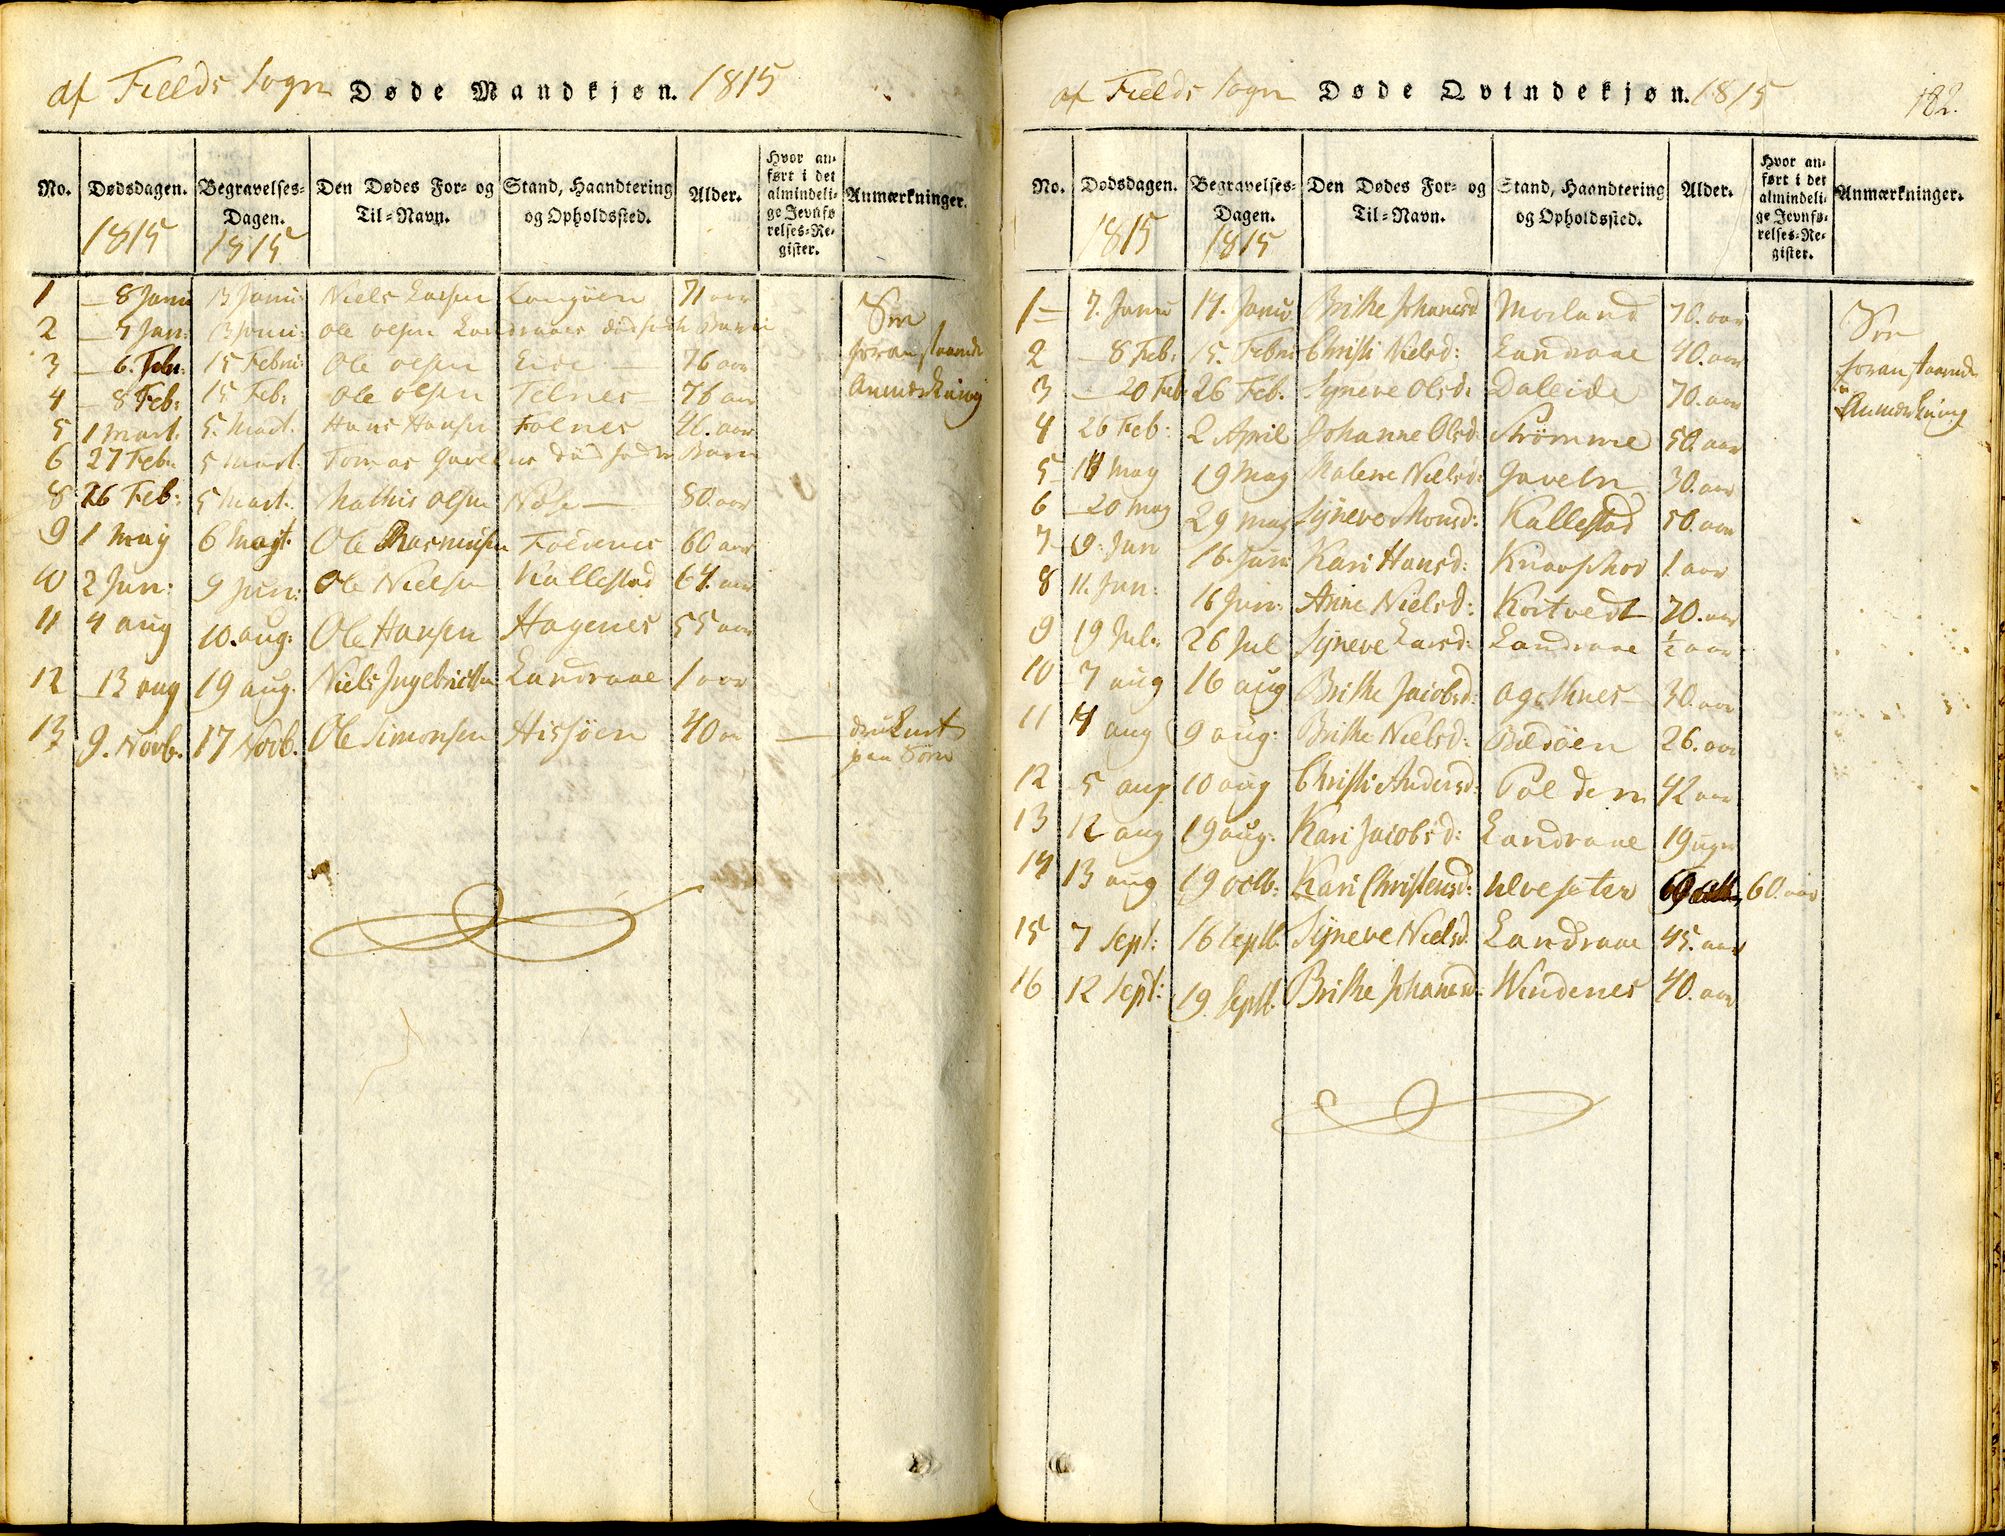 af Fields Sogn Døde Mandkjøn. 1815
No. Dødsdagen. 1815 Begravelses-Dagen. 1815 Den Dødes For- og Til-Navn. Stand, Haandtering og Opholdssted. Alder. Hvor anført i det almindelige Jevnførelses-Register. Anmærkninger.
1 8 Janu 13 Janu: Niels Larsen Langøen 71 aar See
2 5 Jan: 13 Janu: Ole Olsen Landraae dødfødt Barn foranstaaende
3 6. Feb: 15 Febru: Ole Olsen Eide 76 aar Anmærkning
4 8 Feb: 15 Feb: Ole Olsen Telnes 76 aar
5 1 Mart. 5. Mart. Hans Hansen Folnes 46. aar
6 27 Feb: 5 Mart. Tomas Gaveln dødfødt Barn
8 26 Feb: 5 Mart. Mathis Olsen Næse 80. aar
9 1 May 6 Ole Rasmusen 60 aar
10 2 Jun: 9 Jun: Ole Nielsen Kallestad 64. aar
11 4 aug 10. aug: Ole Hansen Hagenes 55 aar
12 13 aug 19 aug. Niels Ingebrictsen Landraae 1 aar
13 9. Novb. 17 Novb. Ole Simonsen Hisøen 40 aar druknet
paa Søen
af Fields Sogn Døde Qvindekjøn. 1815 182.
No. Dødsdagen. 1815 Begravelses-Dagen. 1815 Den Dødes For- og Til-Navn. Stand, Haandtering og Opholdssted. Alder. Hvor anført i det almindelige Jevnførelses-Register. Anmærkninger.
1 7. Janu 14. Janu Brithe Johannesd Morland 70. aar See
2 8 Feb: 15. Febru Christi Nielsd: Landraae 40. aar foranstaaende
3 20 Feb 26 Feb. Syneve Olsd: Daleide 70. aar Anmærkning
4 26 Feb: 2 April Johanne Olsd: Strømme 50. aar
5 14 May 19 May Malene Nielsd: Gaveln 30. aar
6 20 May 29 May Syneve Monsd: Kallestad 50. aar
7 9. Jun 16. Jun: Kari Hansd: 1 aar
8 11. Jun: 16 Jun: Anne Nielsd: Kortvedt 70. aar
9 19 Jul. 26 Jul Syneve Larsd: Landraae ½ aar
10 7 aug 16 aug Brithe Jacobsd: Agathnes 30. aar
11 4 aug 9 aug: Brithe Nielsd: 26. aar
12 5 aug 10 aug Christi Andersd: 42 aar
13 12 aug 19 aug: Kari Jacobsd: Landraae 19 uger
14 13 aug 19 octb: Kari Christensd: Ulvesæter 60. aar
15 7 Sept: 16 Septb. Syneve Nielsd. Landraae 45. aar
16 12 Sept: 19 Septb. Brithe Johannesd Windenes 40. aar